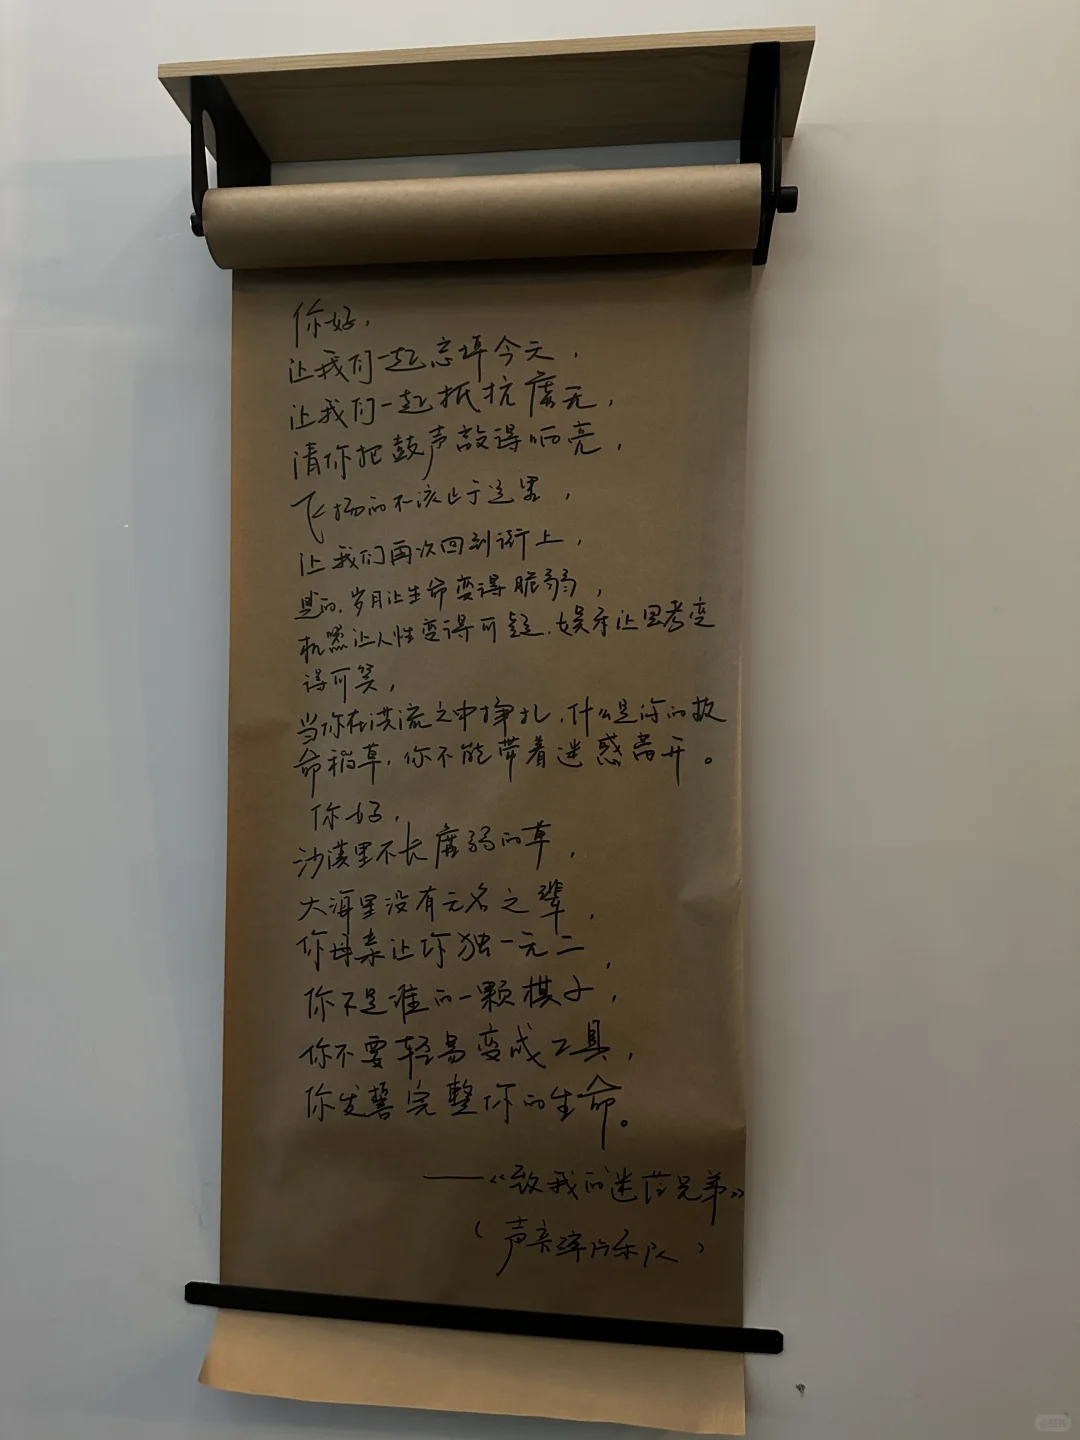 你好,
让我们一起忘掉今天,
让我们一起抵抗虚无,
请你把鼓声敲得响亮,
飞扬的不该止于这里,
让我们再次回到街上,
是的,岁月让生命变得脆弱,
机器让人性变得可疑,娱乐让思考变
得可笑,
当你在洪流之中挣扎,什么是你的救
命稻草,你不能带着迷惑离开。
你好,
沙漠里不长孱弱的草,
大海里没有无名之辈,
你母亲让你独一无二,
你不是谁的一颗棋子,
你不要轻易变成工具,
你发誓完整你的生命。
——《致我的迷茫兄弟》
(声音碎片乐队)
小红书